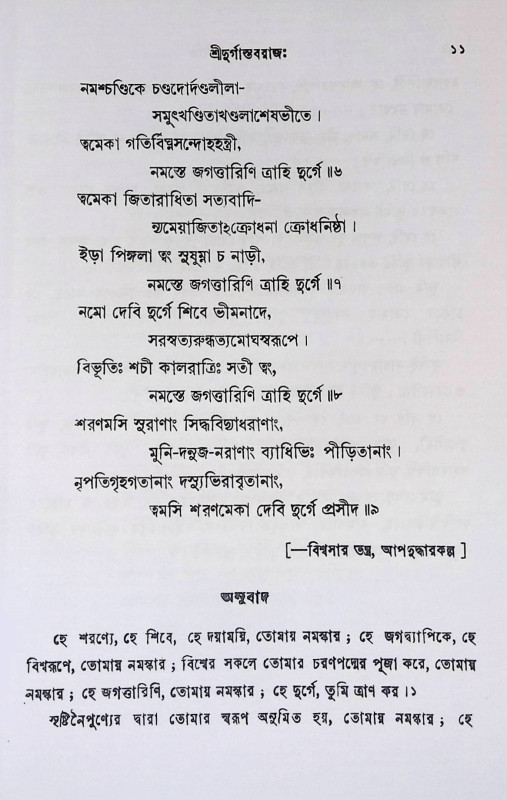 শ্রীদুর্গাস্তবরাজঃ ১১
নমশ্চণ্ডিকে চণ্ডদোর্দণ্ডলীলা-
সমুৎখণ্ডিতাখণ্ডলাশেষভীতে।
ত্বমেকা গতির্বিঘ্নসন্দোহহন্ত্রী,
নমস্তে জগত্তারিণি ত্রাহি দুর্গে ॥৬
ত্বমেকা জিতারাধিতা সত্যবাদি-
ন্যমেয়াজিতাঽক্রোধনা ক্রোধনিষ্ঠা।
ইড়া পিঙ্গলা ত্বং সুষুম্না চ নাড়ী,
নমস্তে জগত্তারিণি ত্রাহি দুর্গে ॥৭
নমো দেবি দুর্গে শিবে ভীমনাদে,
সরস্বত্যরুন্ধত্যমোঘস্বরূপে।
বিভূতিঃ শচী কালরাত্রিঃ সতী ত্বং,
নমস্তে জগত্তারিণি ত্রাহি দুর্গে ॥৮
শরণমসি সুরাণাং সিদ্ধবিদ্যাধরাণাং,
মুনি-দনুজ-নরাণাং ব্যাধিভিঃ পীড়িতানাং।
নৃপতিগৃহগতানাং দস্যুভিরাবৃতানাং,
ত্বমসি শরণমেকা দেবি দুর্গে প্রসীদ ॥৯
[—বিশ্বসার তন্ত্র, আপদুদ্ধারকল্প]
অনুবাদ
হে শরণ্যে, হে শিবে, হে দয়াময়ি, তোমায় নমস্কার; হে জগদ্ব্যাপিকে, হে
বিশ্বরূপে, তোমায় নমস্কার; বিশ্বের সকলে তোমার চরণপদ্মের পূজা করে, তোমায়
নমস্কার; হে জগত্তারিণি, তোমায় নমস্কার; হে দুর্গে, তুমি ত্রাণ কর।১
সৃষ্টিনৈপুণ্যের দ্বারা তোমার স্বরূপ অনুমিত হয়, তোমায় নমস্কার; হে